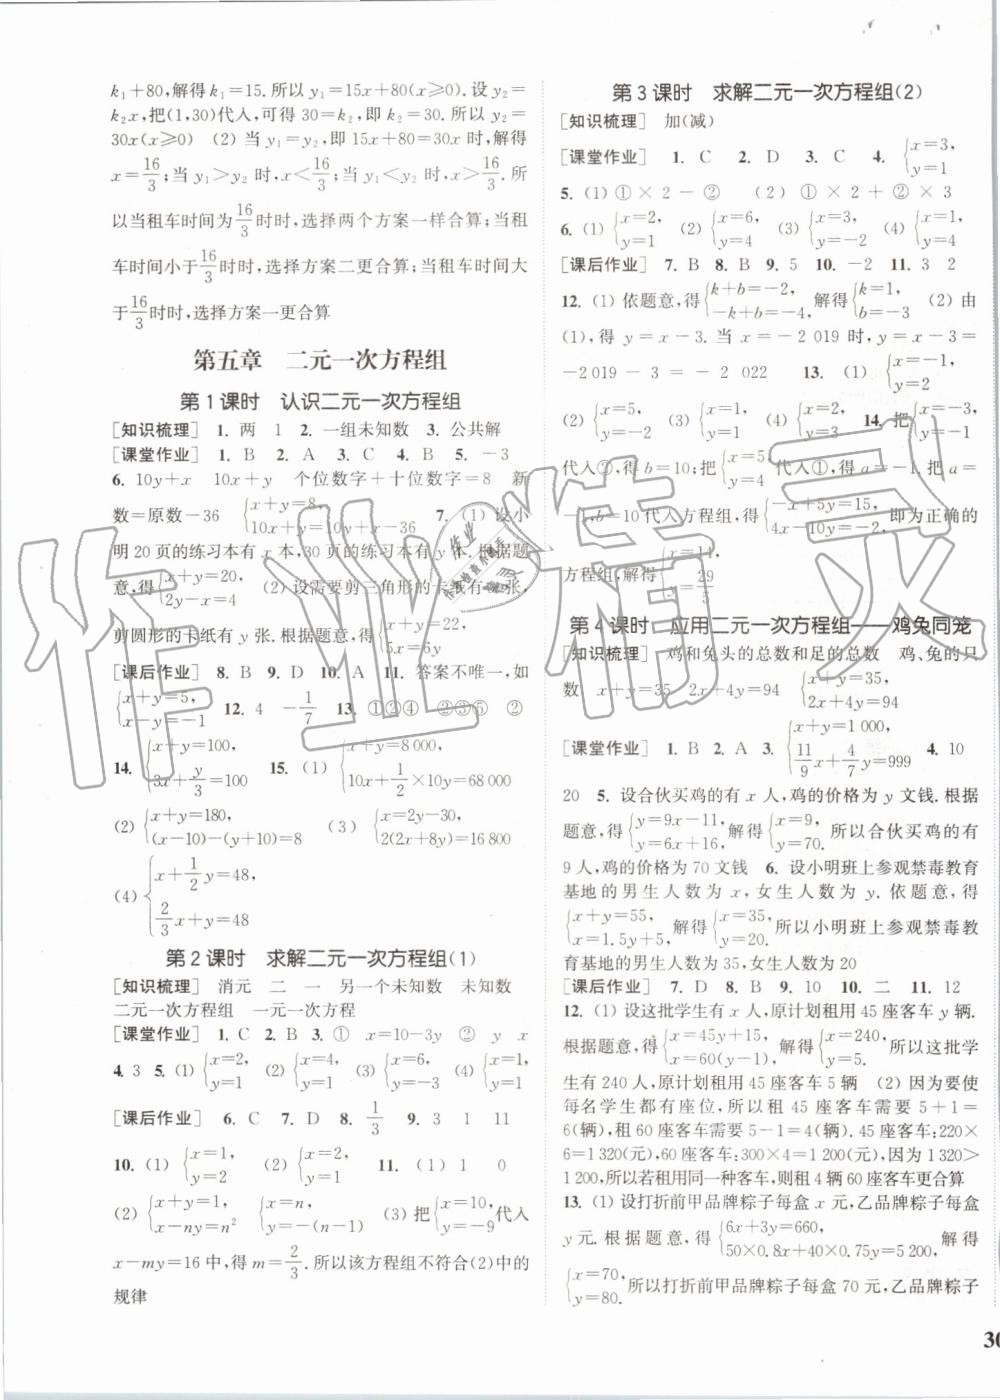 k₁+80,解得k₁=15.所以y₁=15x+80(x≥0).设y₂=
k₂x,把(1,30)代入,可得30=k₂,即k₂=30.所以y₂=
30x(x≥0) (2) 当y₁=y₂,即15x+80=30x时,解得
x=16/3;当y₁>y₂时,x<16/3;当y₁<y₂时,x>16/3.所
以当租车时间为16/3时时,选择两个方案一样合算;当租
车时间小于16/3时时,选择方案二更合算;当租车时间大
于16/3时时,选择方案一更合算
第五章 二元一次方程组
第1课时 认识二元一次方程组
[知识梳理] 1. 两 1 2. 一组未知数 3. 公共解
[课堂作业] 1. B 2. A 3. C 4. B 5. -3
6. 10y+x 10x+y 个位数字+十位数字=8 新
数=原数-36 {x+y=8, 10x+y=10y+x-36 7. (1) 设小
明20页的练习本有x本,30页的练习本有y本.根据题
意,得{x+y=20, 2y-x=4 (2) 设需要剪三角形的卡纸有x张,
剪圆形的卡纸有y张.根据题意,得{x+y=22, 5x=6y
[课后作业] 8. B 9. D 10. A 11. 答案不唯一,如
{x+y=5, x-y=-1 12. 4 -1/7 13. ①③④ ②③⑤ ②
14. {x+y=100, 3x+y/3=100 15. (1) {x+y=8 000, 10x+1/2×10y=68 000
(2) {x+y=180, (x-10)-(y+10)=8 (3) {x=2y-30, 2(2x+8y)=16 800
(4) {x+1/2y=48, 2/3x+y=48
第2课时 求解二元一次方程组(1)
[知识梳理] 消元 二 一 另一个未知数 未知数
二元一次方程组 一元一次方程
[课堂作业] 1. C 2. B 3. ① x=10-3y ② y x
4. 3 5. (1) {x=2, y=1 (2) {x=4, y=1 (3) {x=6, y=-3 (4) {x=1, y=1
[课后作业] 6. C 7. D 8. 1/3 9. 3 1 11
10. (1) {x=1, y=2 (2) {x=3, y=2 11. (1) 1 0
(2) {x+y=1, x-ny=n² {x=n, y=-(n-1) (3) 把{x=10, y=-9代入
x-my=16中,得m=2/3.所以该方程组不符合(2)中的
规律
第3课时 求解二元一次方程组(2)
[知识梳理] 加(减)
[课堂作业] 1. C 2. D 3. C 4. {x=3, y=1
5. (1) ①×2-② (2) ①×2+②×3
6. (1) {x=2, y=1 (2) {x=6, y=4 (3) {x=3, y=-2 (4) {x=1, y=4
[课后作业] 7. B 8. B 9. 5 10. -2 11. 3 2
12. (1) 依题意,得{k+b=-2, -k+b=-4, 解得{k=1, b=-3 (2) 由
(1),得y=x-3.当x=-2 019时,y=x-3=
-2019-3=-2 022 13. (1) {x=-1, y=2
(2) {x=5, y=-1 (3) {x=2, y=1 (4) {x=3, y=2 14. 把{x=-3, y=-1
代入②,得b=10;把{x=5, y=4代入①,得a=-1.把a=
-1,b=10代入方程组,得{-x+5y=15, 4x-10y=-2, 即为正确的
方程组,解得{x=14, y=29/5
第4课时 应用二元一次方程组——鸡兔同笼
[知识梳理] 鸡和兔头的总数和足的总数 鸡、兔的只
数 x+y=35 2x+4y=94 {x+y=35, 2x+4y=94
[课堂作业] 1. B 2. A 3. {x+y=1 000, 11/9x+4/7y=999 4. 10
20 5. 设合伙买鸡的有x人,鸡的价格为y文钱.根据
题意,得{y=9x-11, y=6x+16, 解得{x=9, y=70. 所以合伙买鸡的有
9人,鸡的价格为70文钱 6. 设小明班上参观禁毒教育
基地的男生人数为x,女生人数为y.依题意,得
{x+y=55, x=1.5y+5, 解得{x=35, y=20. 所以小明班上参观禁毒教
育基地的男生人数为35,女生人数为20
[课后作业] 7. D 8. B 9. 10 10. 二 11. 12
12. (1) 设这批学生有x人,原计划租用45座客车y辆.
根据题意,得{x=45y+15, x=60(y-1). 解得{x=240, y=5. 所以这批学
生有240人,原计划租用45座客车5辆 (2) 因为要使
每名学生都有座位,所以租45座客车需要5+1=
6(辆),租60座客车需要5-1=4(辆).租45座客车:220×
6=1 320(元),租60座客车:300×4=1 200(元),因为1 320>
1 200,所以若租用同一种客车,则租4辆60座客车更合算
13. (1) 设打折前甲品牌粽子每盒x元,乙品牌粽子每盒
y元.根据题意,得{6x+3y=660, 50×0.8x+40×0.75y=5 200, 解得
{x=70, y=80. 所以打折前甲品牌粽子每盒70元,乙品牌粽子
30
作业精灵